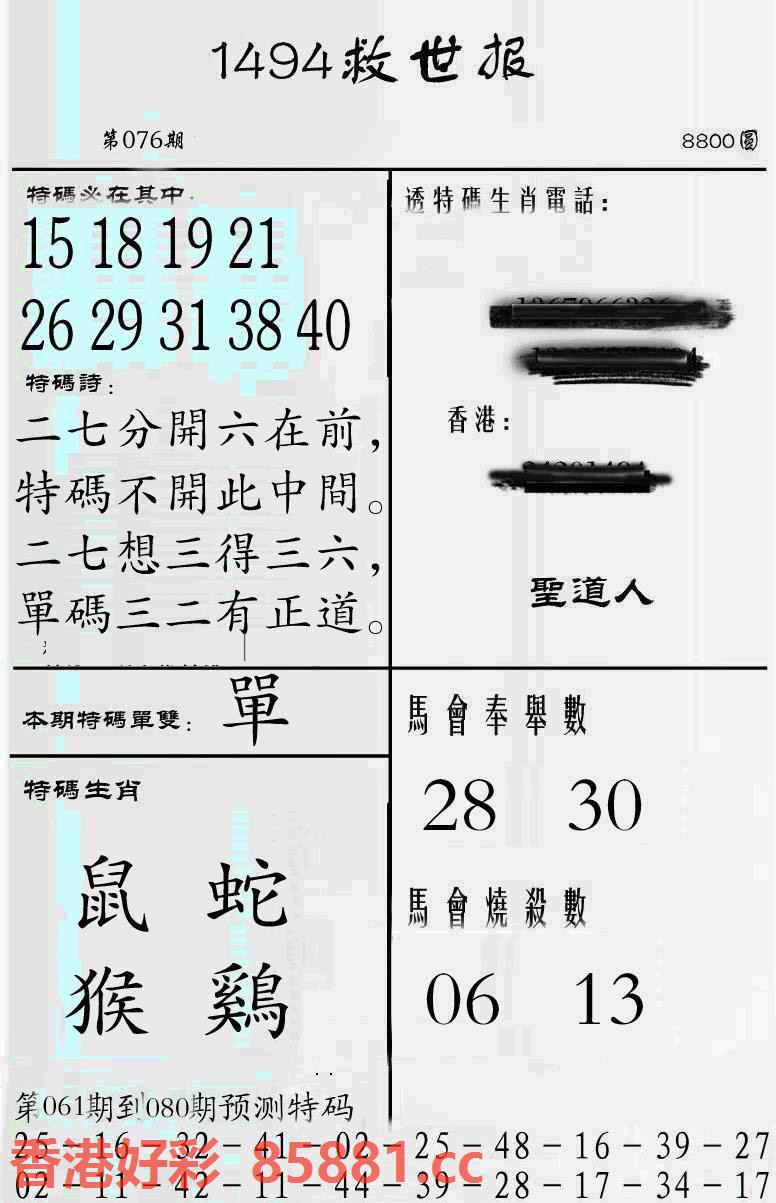 1494救世报
第076期
8800圓
特碼必在其中:
15 18 19 21
26 29 31 38 40
特碼詩:
二七分開六在前,
特碼不開此中間。
二七想三得三六,
單碼三二有正道。
透特碼生肖電話:
香港:
聖道人
本期特碼單雙: 單
特碼生肖
鼠 蛇
猴 鷄
馬會奉舉數
28 30
馬會燒殺數
06 13
第061期到080期预测特码
25-16-32-41-02-25-48-16-39-27
02-11-42-11-44-39-28-17-34-17
香港好彩 85881.cc